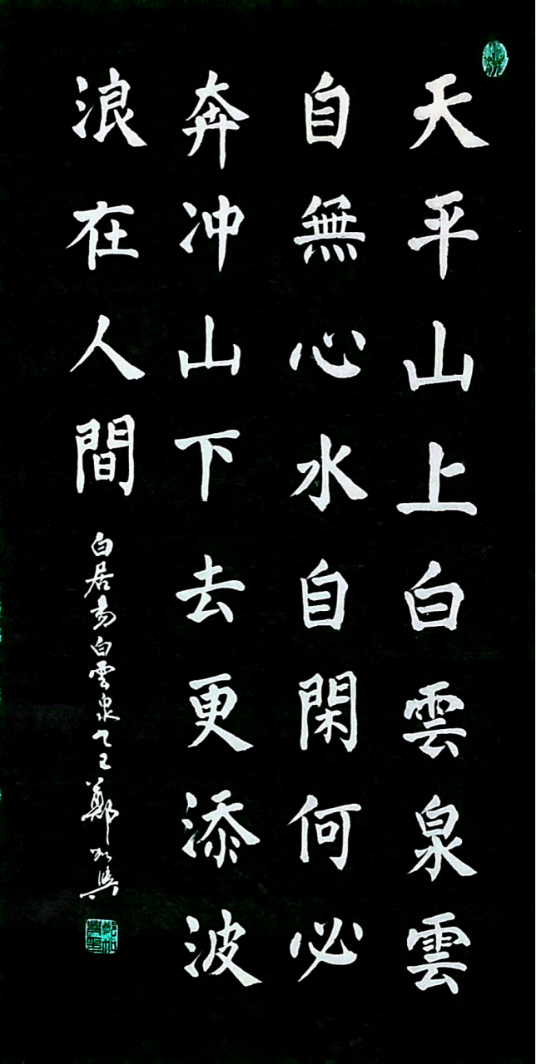 天平山上白雲泉雲
自無心水自閑何必
奔冲山下去更添波
浪在人間
白居易白雲泉乙巳鄭如興